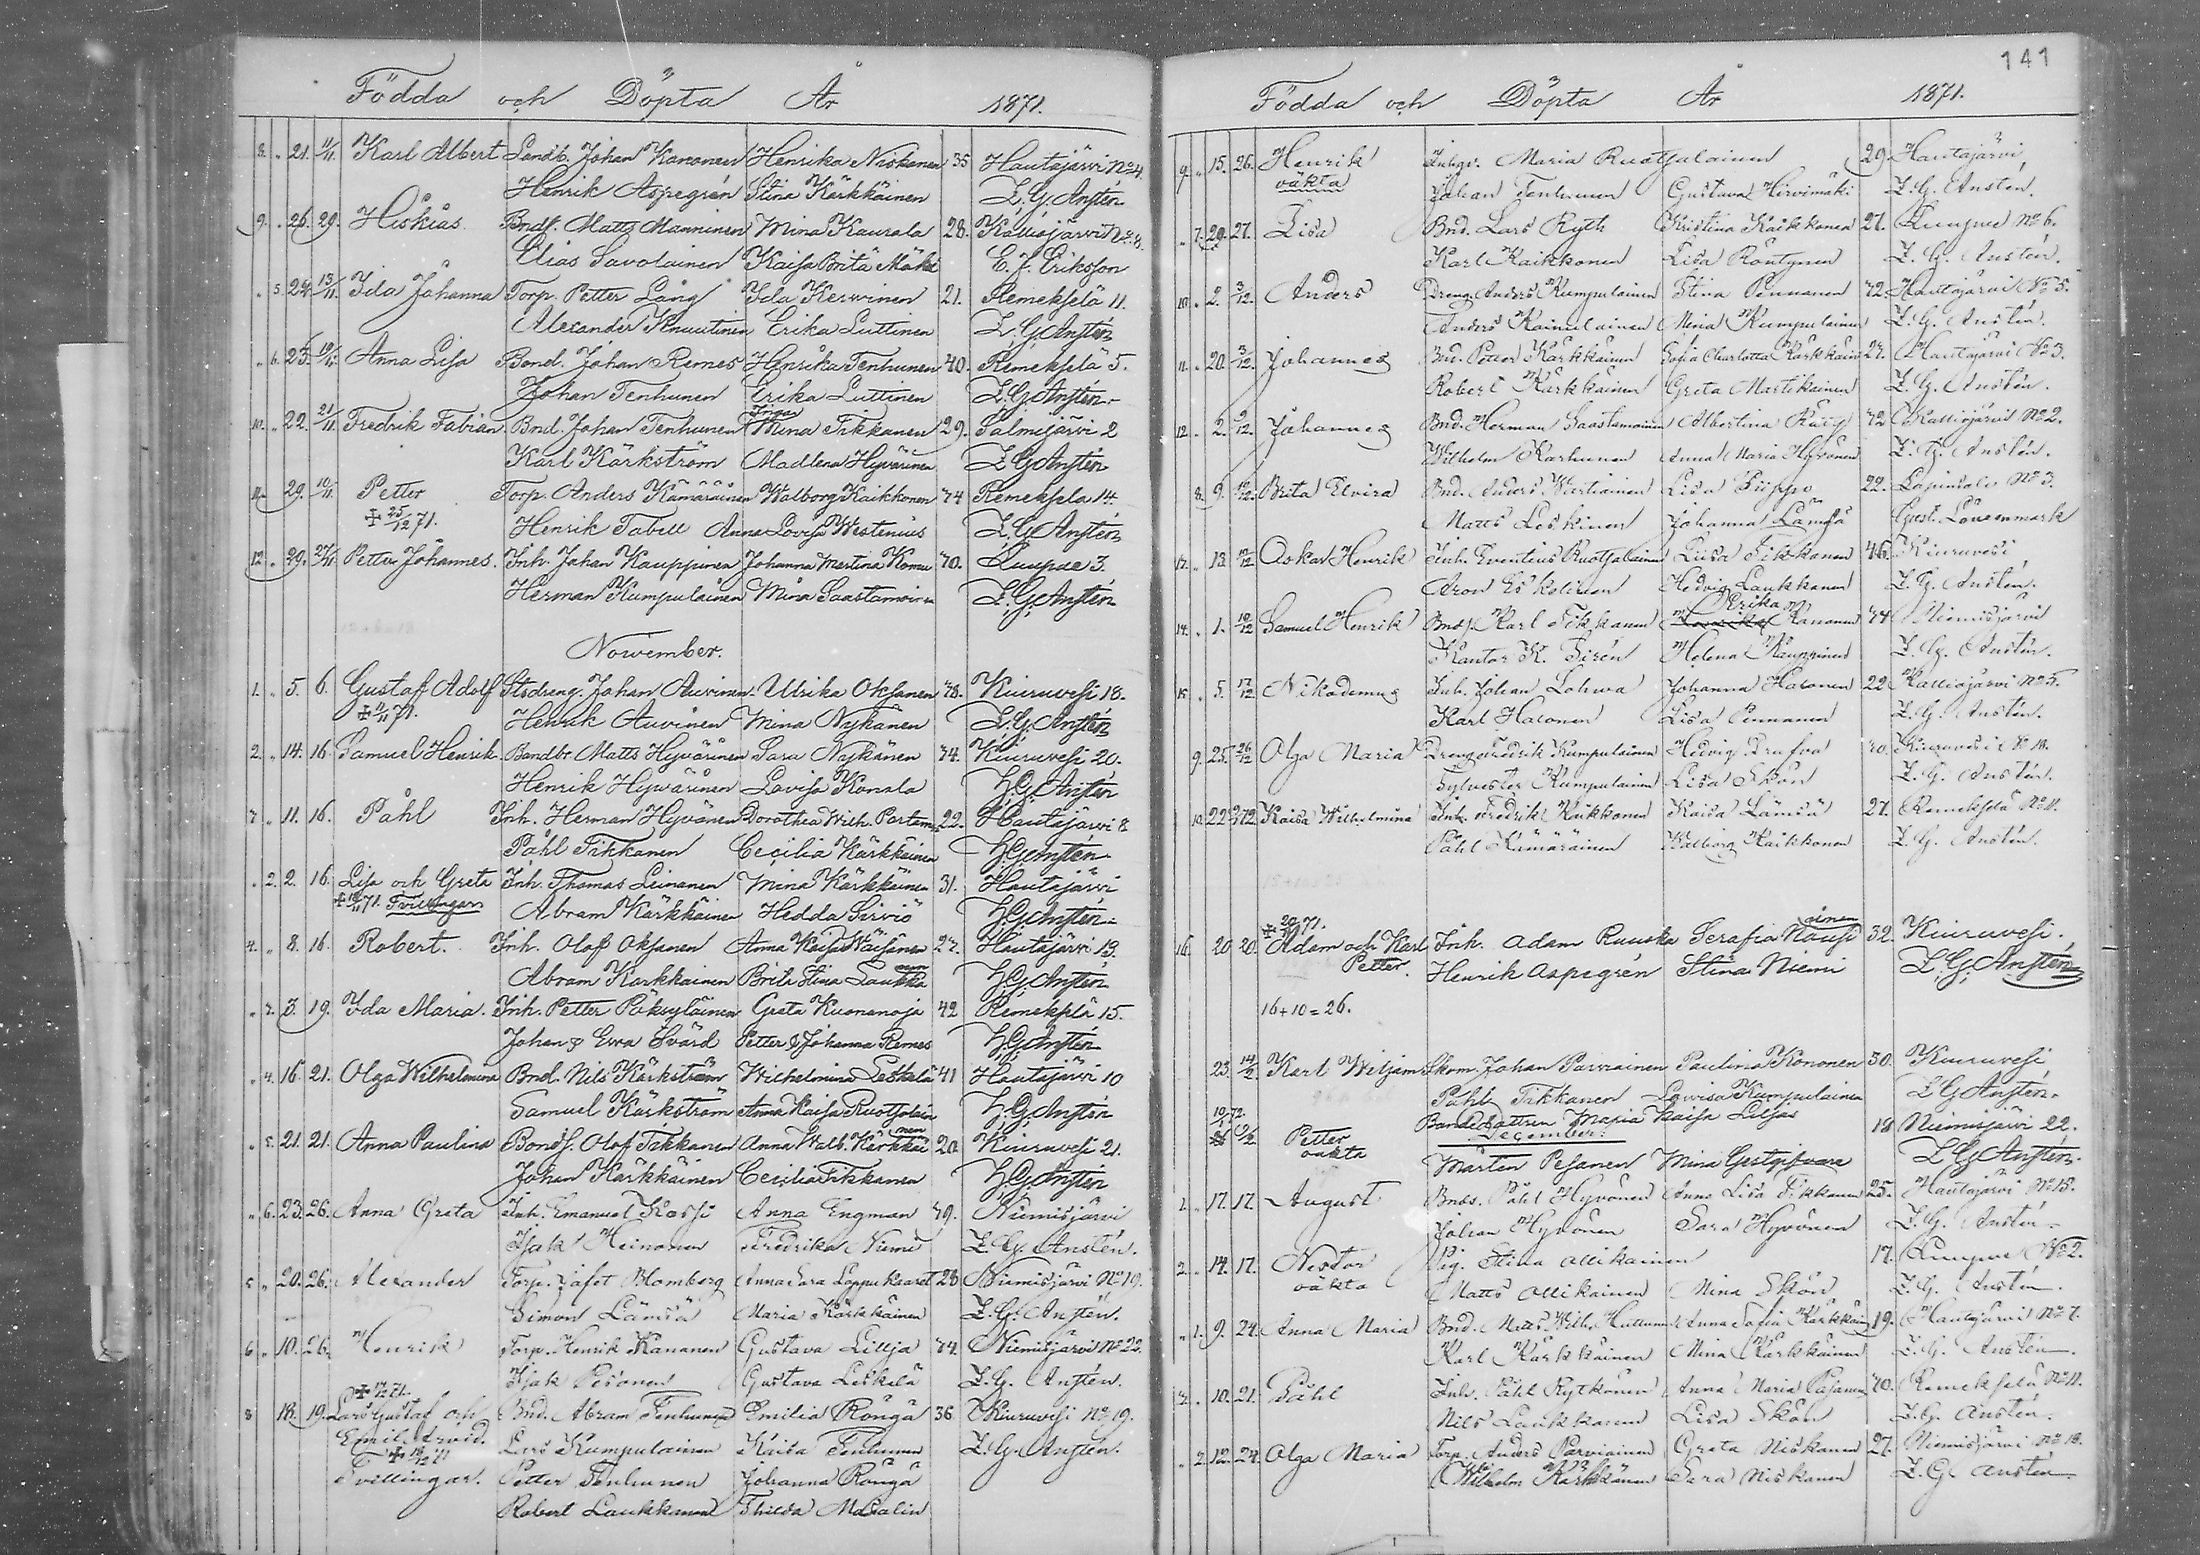 Födda och Döpta År 1871.
8. " 21. 11/11. Karl Albert Landb. Johan Kananen Henrika Niskanen 35 Hautajärvi No 4.
Henrik Aspegrén Stina Kärkkäinen L. G. Anstén
9. " 26. 29. Hiskias Bndf. Matts Manninen Mina Kaurala 28. Kalliojärvi No 8.
Elias Savolainen Kaisa Brita Mäki E. J. Eriksson
" 5. 24. 13/11. Ida Johanna Torp. Petter Lång Ida Kerwinen 21. Remekselä 11.
Alexander Knuutinen Erika Luttinen L. G. Anstén
" 6. 23. 19/11. Anna Lisa Bond. Johan Remes Henrika Tenhunen 40. Remekselä 5.
Johan Tenhunen Erika Luttinen L. G. Anstén
10. " 22. 21/11. Fredrik Fabian Bnd. Johan Tenhunen Mina Tikkanen 29. Salmijärvi 2
Karl Kärkström Madlena Hyvärinen L. G. Anstén
11. 29. 10/11. Petter Torp. Anders Kämäräinen Walborg Kaikkonen 44 Remekselä 14.
+ 25/12 71. Henrik Tabell Anna Lovisa Westenius L. G. Anstén
12. " 29. 27/11. Petter Johannes. Inh. Johan Kauppinen Johanna Martina Komu 40. Luupue 3.
Herman Kumpulainen Mina Saastamoinen L. G. Anstén
November.
1. " 5. 6. Gustaf Adolf Stsdreng. Johan Auvinen Ulrika Oksanen 43. Kiuruvesi 18.
+ 11/11 71. Henrik Auvinen Mina Nykänen L. G. Anstén
2. " 14. 16. Samuel Henrik Bandbr. Matts Hyvärinen Sara Nykänen 34. Kiuruvesi 20.
Henrik Hyvärinen Lovisa Konala L. G. Anstén
3. " 11. 16. Påhl Inh. Herman Hyvönen Dorothea Wilh. Partanen 22. Hautajärvi 8
Påhl Tikkanen Cecilia Kärkkäinen L. G. Anstén
" 2. 2. 16. Lisa och Greta Inh. Thomas Leinonen Mina Kärkkäinen 31. Hautajärvi
Tvillingar Abram Kärkkäinen Hedda Sirviö L. G. Anstén
4. " 8. 16. Robert. Inh. Olof Oksanen Anna Kaisa Wäisänen 27. Hautajärvi 13.
Abram Karkkainen Brita Stina Laukkanen L. G. Anstén
" 3. 3. 19. Ida Maria. Inh. Petter Päksyläinen Greta Kuonanoja 42 Remekselä 15.
Johan & Ewa Svärd Petter & Johanna Remes L. G. Anstén
" 4. 16. 21. Olga Wilhelmina Bnd. Nils Kärkström Wilhelmina Leskelä 41 Hautajärvi 10
Samuel Kärkström Anna Kaisa Ruotsalain L. G. Anstén
" 5. 21. 21. Anna Paulina Bonds. Olof Tikkanen Anna Walb. Kärkkäinen 20. Kiuruvesi 21.
Johan Kärkkäinen Cecilia Tikkanen L. G. Anstén
" 6. 23. 26. Anna Greta Inh. Emanuel Kossi Anna Engman 39. Niemisjärvi
Isak Heinonen Fredrika Niemi L. G. Anstén.
5 " 20. 26. Alexander Torp. Jafet Blomberg Anna Sara Loppukaaret 28 Niemisjärvi No 19.
Simon Lämsä Maria Kärkkäinen L. G. Anstén.
6 " 10. 26. Henrik Torp. Henrik Kananen Gustava Lillja 34. Niemisjärvi No 22.
Isak Pesonen Gustava Leskelä L. G. Anstén.
8 18. 19. Lars Gustaf och Bnd. Abram Tenhunen Emilia Röngä 36 Kiuruvesi No 19.
Emil Arvid. Lars Kumpulainen Kaisa Tenhunen L. G. Anstén.
Tvillingar. Petter Tenhunen Johanna Röngä
Robert Laukkanen Thilda Masalin
141
Födda och Döpta År 1871.
9. " 15. 26. Henrik Inhgs. Maria Ruotsalainen 29. Hautajärvi
oäkta Johan Tenhunen Gustava Hirvimäki L. G. Anstén.
" 7. 29. 27. Lisa Bnd. Lars Ryth Kristina Kaikkonen 27. Luupue No 6.
Karl Kaikkonen Lisa Röntynen L. G. Anstén.
10. " 2. 3/12. Anders Dreng Anders Kumpulainen Stina Pennanen 42. Hautajärvi No 5.
Anders Kainulainen Mina Kumpulainen L. G. Anstén.
11. " 20. 3/12. Johannes Bnd. Petter Kärkkäinen Sofia Charlotta Kärkkäin 27. Hautajärvi No 3.
Robert Kärkkäinen Greta Martikainen L. G. Anstén.
12. " 2. 9/12. Johannes Bnd. Herman Saastamoinen Albertina 42 Kalliojärvi No 2.
Wilhelm Karhunen Anna Maria Hyvönen L. G. Anstén.
8. 9. 10/12. Brita Elvira Bnd. Anders Wartiainen Lisa Piippo 22. Lapinsalo No 3.
Matts Leskinen Johanna Lämsä Gust. Lönnmark
13. " 13. Oskar Henrik Inh. Eventius Ruotsalainen Lisa Tikkanen 46. Kiuruvesi
Aron Eskelinen Hedvig Laukkanen L. G. Anstén.
14. " 1. 10/12 Samuel Henrik Bnds. Karl Tikkanen Erika Kananen 44 Niemisjärvi
Kantor K. Sirén Helena Kauppinen L. G. Anstén.
15. " 5. 17/12 Nikodemus Inh. Johan Lohwa Johanna Halonen 22 Kalliojärvi No 5.
Karl Halonen Lisa Pennanen L. G. Anstén.
9. 25. 26/12 Olga Maria Dreng Fredrik Kumpulainen Hedvig 40. Kiuruvesi No 18.
Sylvester Kumpulainen Lisa Skön L. G. Anstén.
10. 22. Kaisa Wilhelmina Inh. Fredrik Kaikkonen Kaisa Lämsä 27. Remekselä No 11.
Påhl Kämäräinen Walborg Kaikkonen L. G. Anstén.
16. 20 20. Adam och Karl Inh. Adam Ruuska Serafia Nousiainen 32. Kiuruvesi.
Petter. Henrik Aspegrén Stina Niemi L. G. Anstén
16 + 10 = 26.
23. 14/2 Karl Wiljam Skom. Johan Parviainen Paulina Kononen 30. Kiuruvesi
Påhl Tikkanen Lovisa Kumpulainen L G Anstén.
Petter Bondedottren Maria Kaisa Liljas 18 Niemisjärvi 22.
oäkta December:
Mårten Pesanen Mina Gestgifvare L G Anstén.
1. " 17. 17. August Bnds. Påhl Hyvönen Anna Lisa Tikkanen 25. Hautajärvi No 13.
Johan Hyvönen Sara Hyvönen L. G. Anstén.
2. " 14. 17. Nestor Pig. Stina Ollikainen 17. Luupue No 2.
oäkta Matts Ollikainen Mina Skön L. G. Anstén.
" 1. 9. 24. Anna Maria Bnd. Matts Wilh. Huttunen Anna Sofia Kärkkäin 19. Hautajärvi No 7.
Karl Kärkkäinen Mina Kärkkäinen L. G. Anstén.
3. " 10. 21. Påhl Inh. Påhl Rytkönen Anna Maria Pasanen 40. Remekselä No 11.
Nils Laukkanen Lisa Skön L. G. Anstén.
" 2. 12. 24. Olga Maria Torp. Anders Parviainen Greta Niskanen 27. Niemisjärvi No 18.
Wilhelm Kärkkäinen Sara Niskanen L. G. Anstén